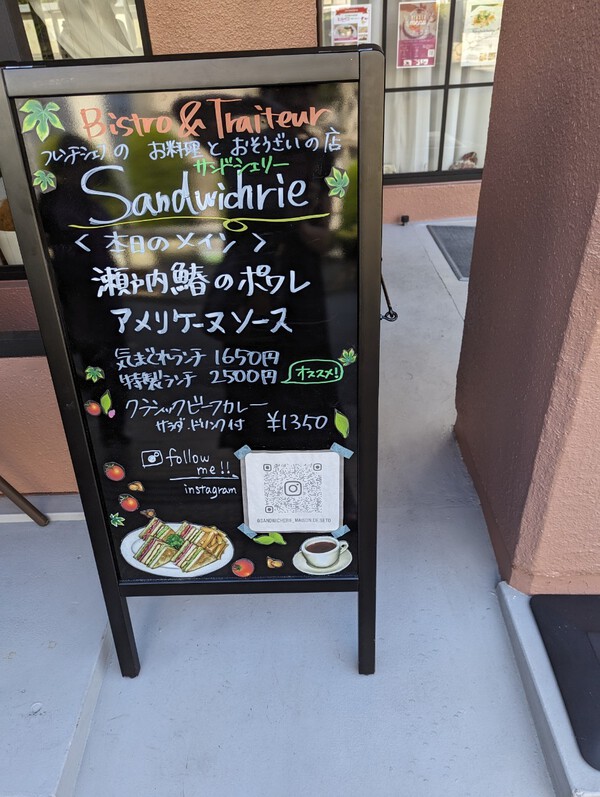 Bistro & Traiteur
フレンチシェフの お料理と おそうざいの店
サンドシェリー
Sandwichrie
< 本日のメイン >
瀬戸内鰆のポワレ
アメリケーヌソース
気まぐれランチ 1650円
特製ランチ 2500円 オススメ!
クラシックビーフカレー
サラダ、ドリンク付 ¥1350
follow me!!
instagram